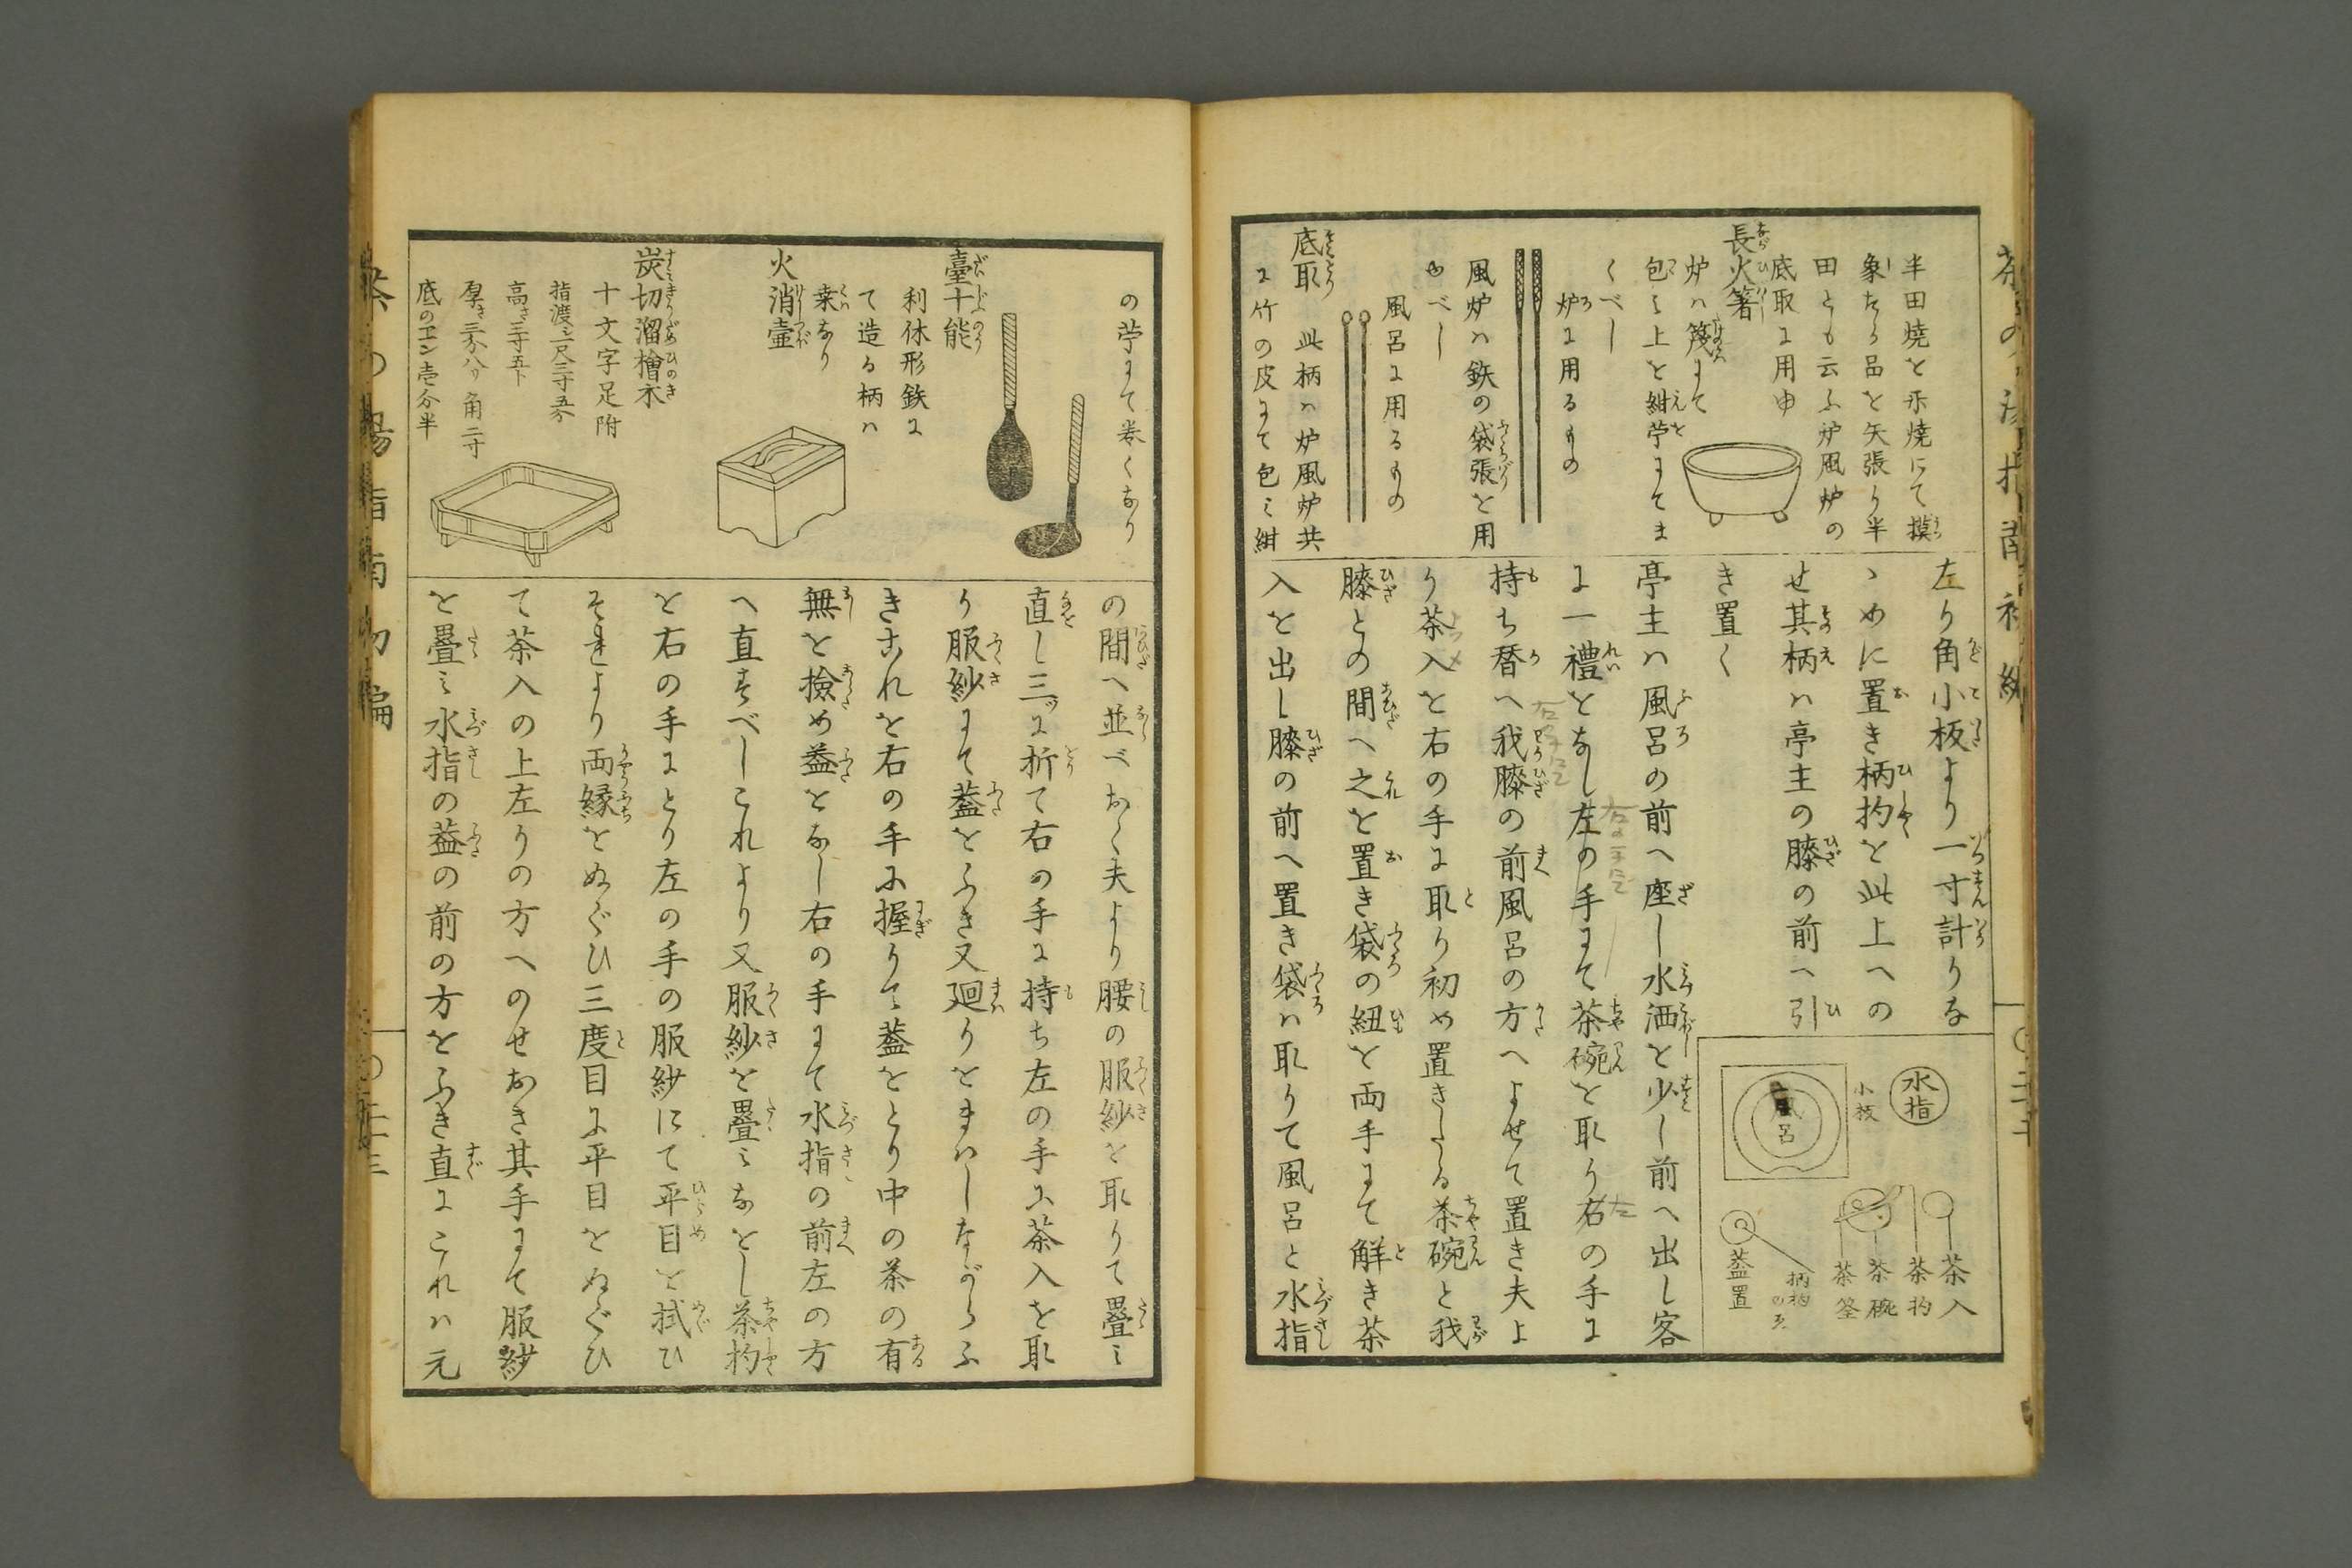 半田焼と示焼にて摸
象たる品を矢張り半
田とも云ふ炉風炉の
底取に用ゆ
長火箸
炉ハ篾にて
包ミ上を紺苧にてま
くべし
炉に用るもの
風炉ハ鉄の袋張を用
ゆべし
風呂に用るもの
底取 此柄ハ炉風炉共
に竹の皮にて包ミ紺
左り角小板より一寸計りな
ゝめに置き柄杓を此上への
せ其柄ハ亭主の膝の前へ引
き置く
水指
小板
風呂
茶入
茶杓
茶碗
茶筌
柄杓
蓋置
亭主ハ風呂の前へ座し水洒を少し前へ出し客
に一禮をなし左の手にて茶碗を取り右の手に
持ち替へ我膝の前風呂の方へよせて置き夫よ
り茶入を右の手に取り初め置きしたる茶碗と我
膝との間へ之を置き袋の紐を両手にて觧き茶
入を出し膝の前へ置き袋ハ取りて風呂と水指
の苧にて巻くなり
臺十能
利休形鉄に
て造る柄ハ
桒なり
火消壷
炭切溜檜木
十文字足附
指渡シ一尺三寸五分
高さ三寸五卜
厚さ三分八リ角二寸
底のエン壱分半
の間へ並べおく夫より腰の服紗を取りて疊ミ
直し三ッに折て右の手に持ち左の手に茶入を取
り服紗にて葢をふき又廻りをまハしながらふ
きこれを右の手に握りて葢をとり中の茶の有
無を撿め葢をなし右の手にて水指の前左の方
へ直すべしこれより又服紗を疊ミなをし茶杓
を右の手にとり左の手の服紗にて平目を拭ひ
それより両縁をぬぐひ三度目に平目をぬぐひ
て茶入の上左りの方へのせおき其手にて服紗
を疊ミ水指の葢の前の方をふき直にこれハ元